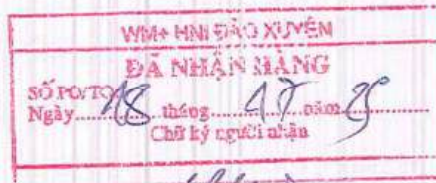 WM+ HNI ĐÀO XUYÊN
ĐÃ NHẬN HÀNG
SỐ PO/TO
Ngày 18 tháng năm 25
Chữ ký người nhận